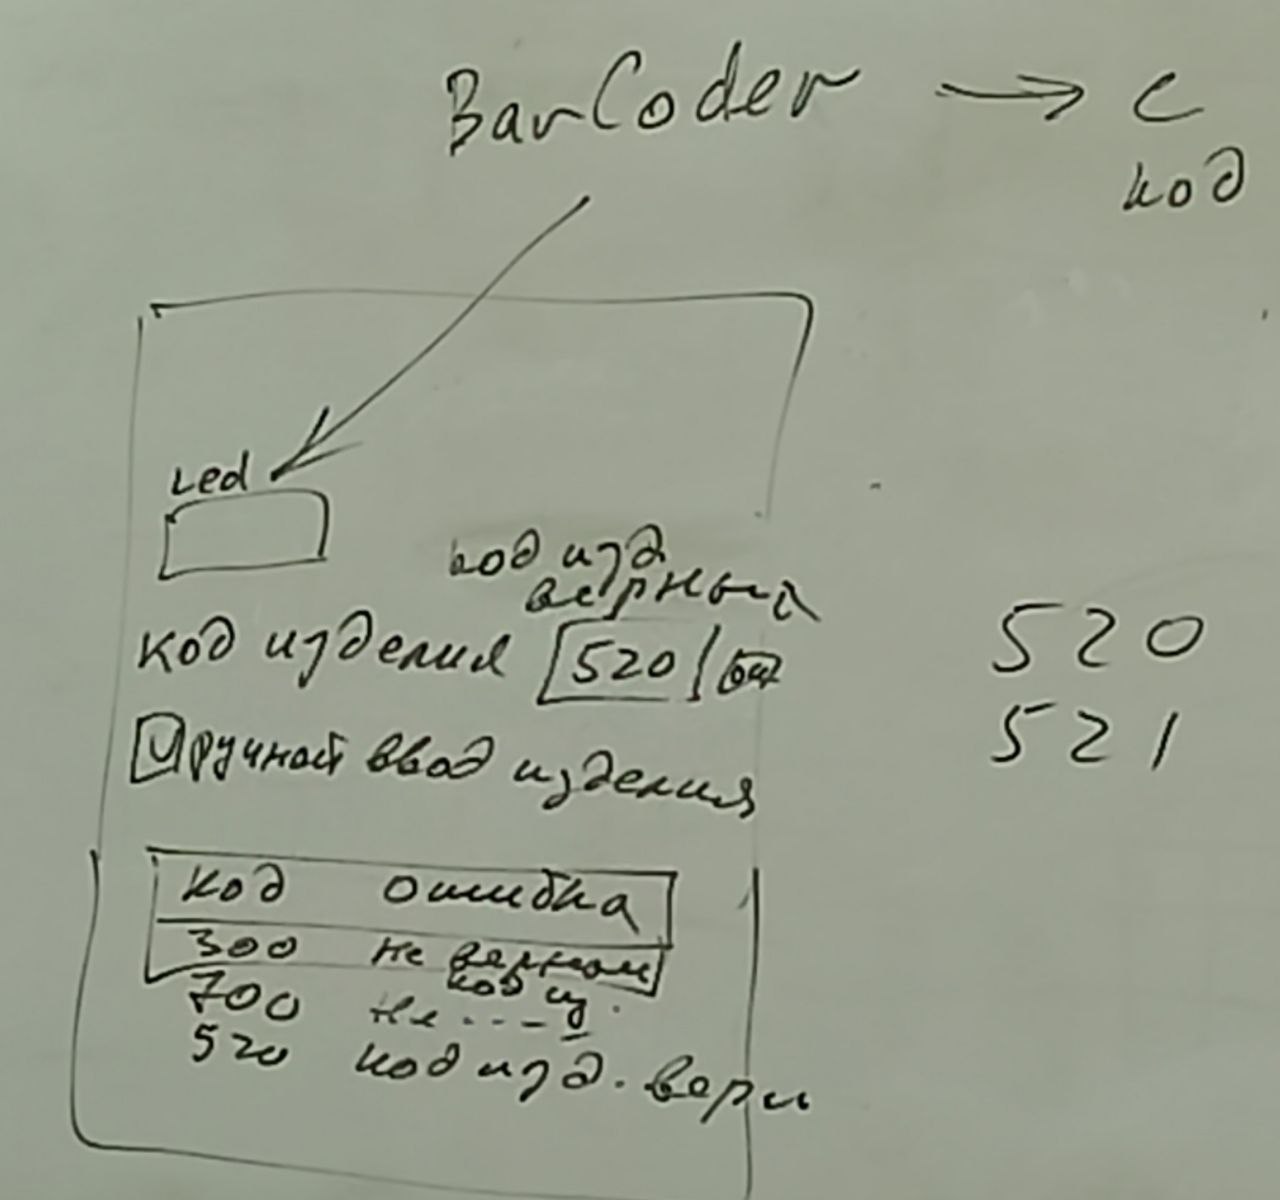 BarCoder → C
код
Led
код изд
верный
код изделия 520
520
ручной ввод изделия
521
код ошибка
300 не верный
код из.
700 не ---
520 код изд. верн